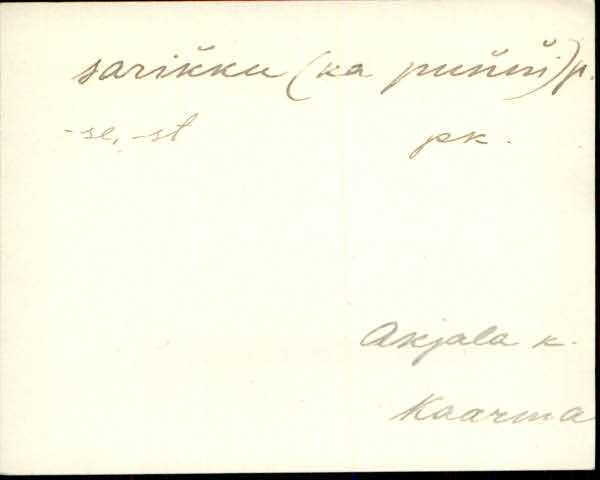 sarik̆ku (ka puňňi) p.
-se, -st pk.
Akjala k.
Kaarma